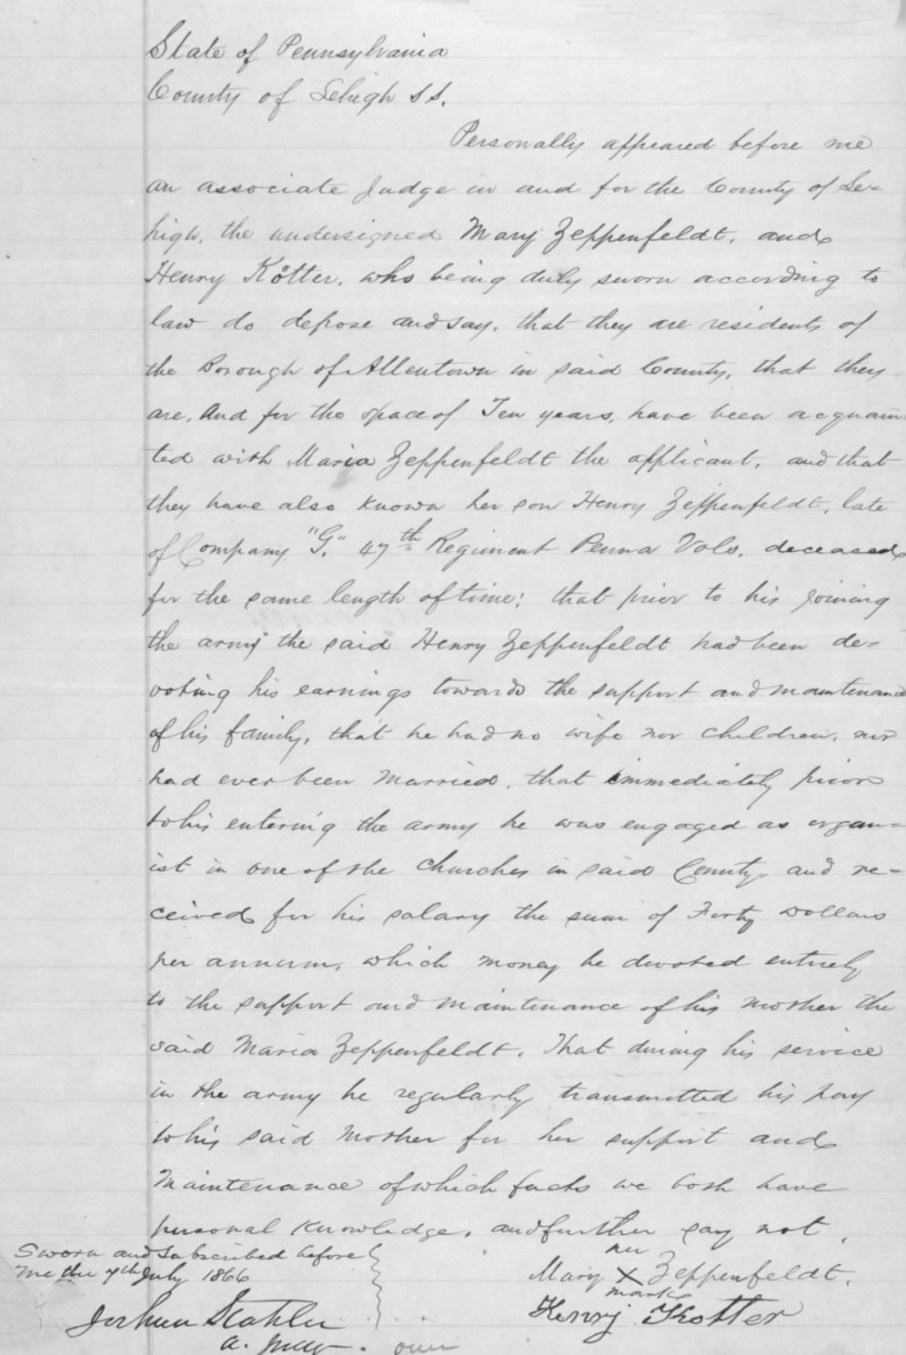 State of Pennsylvania
County of Lehigh SS.
Personally appeared before me
an associate Judge in and for the County of Le=
high, the undersigned Mary Zeppenfeldt, and
Henry Kötter, who being duly sworn according to
law do depose and say, that they are residents of
the Borough of Allentown in said County, that they
are, and for the space of Ten years, have been acquain
ted with Maria Zeppenfeldt the applicant, and that
they have also known her son Henry Zeppenfeldt, late
of Company "G," 47th Regiment Penna Vols, deceased
for the same length of time; that prior to his joining
the army the said Henry Zeppenfeldt had been de=
voting his earnings towards the support and maintenance
of his family, that he had no wife nor children, nor
had ever been married, that immediately prior
to his entering the army he was engaged as organ=
ist in one of the Churches in said County and re=
ceived for his salary the sum of Forty Dollars
per annum, which money he devoted entirely
to the support and maintenance of his mother the
said Maria Zeppenfeldt. That during his service
in the army he regularly transmitted his pay
to his said Mother for her support and
Maintenance of which facts we both have
personal knowledge, and further say not.
Sworn and Subscribed before
me the 7th July 1866
her
Mary X Zeppenfeldt.
mark
Henry Kötter
Joshua Stahler